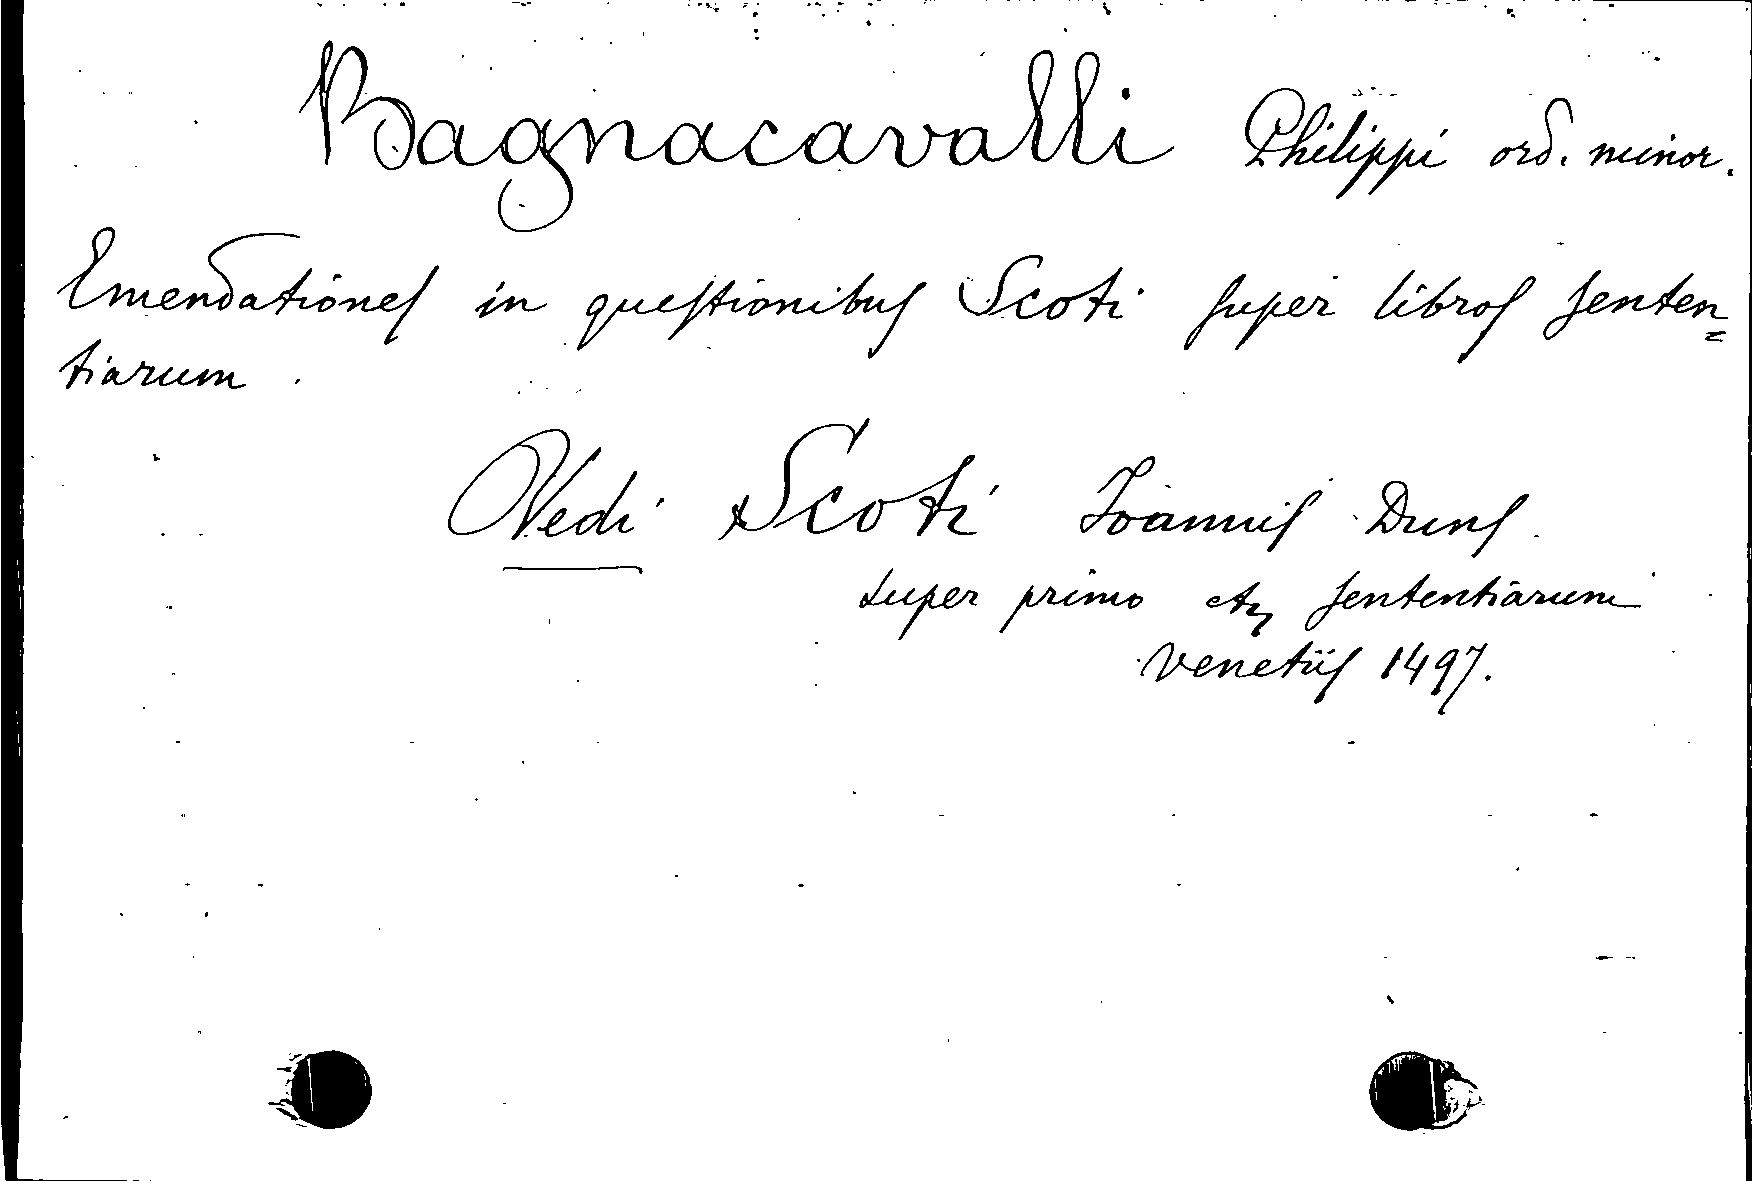 Bagnacavalli Philippi ord. minor.
Emendationes in questionibus Scoti super libros senten=
tiarum.
Vedi Scoti Ioannis Duns.
super primo etz sententiarum
Venetiis 1497.